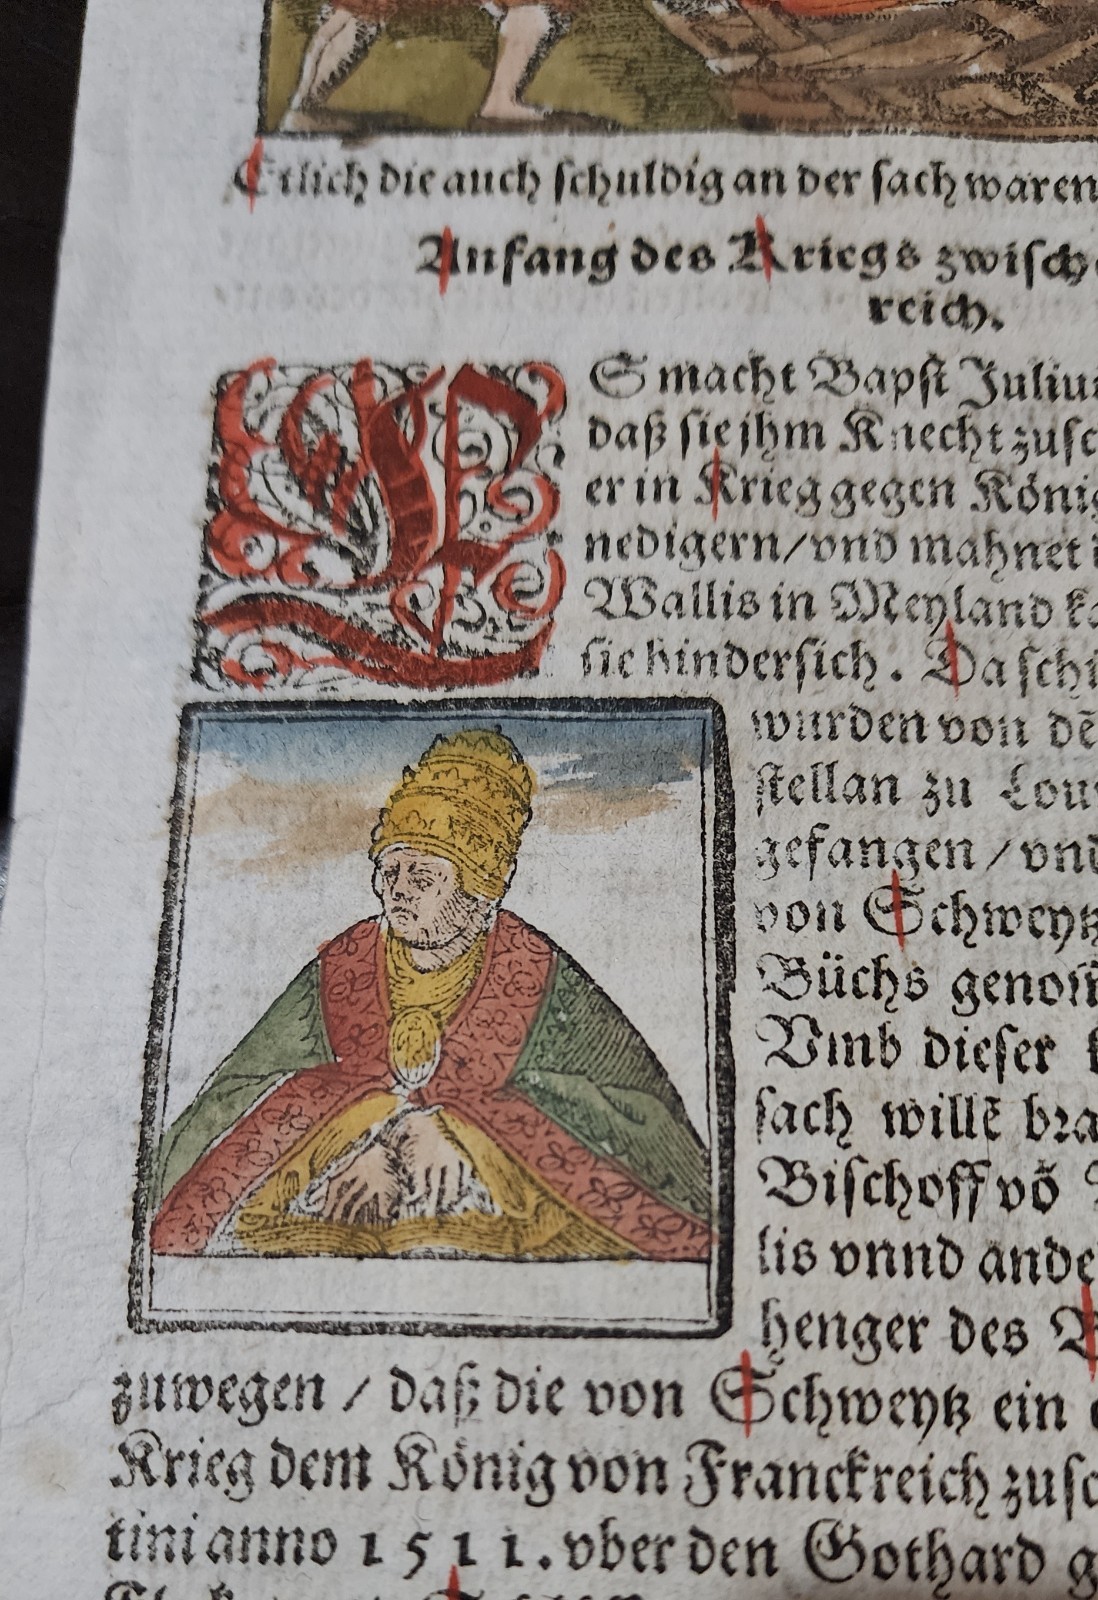 Etlich die auch schuldig an der sach waren
Anfang des Kriegs zwisch
reich.
ES macht Bapst Juliu
daß sie jhm Knecht zusc
er in Krieg gegen König
nedigern/vnd mahnet
Wallis in Meyland
sie hindersich. Da schi
wurden von dē
stellan zu
gefangen/vnd
von Schweytz
Büchs genom̄
Vmb dieser
sach willē bra
Bischoff võ
lis vnnd ande
henger des
zuwegen/daß die von Schweytz ein
Krieg dem König von Franckreich zusc
tini anno 1511. vber den Gothard g